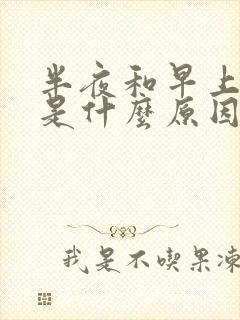 半夜和早上
是什麼原因
我是不喫果凍